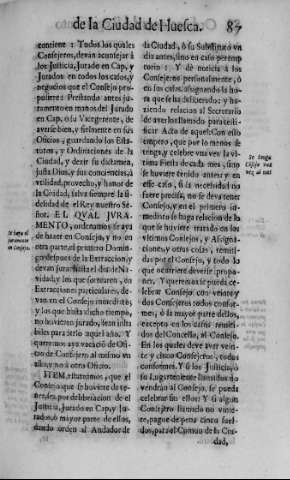 de la Ciudad de Huesca. 87
contiene : Todos los quales
Consejeros, devan aconsejar à
los Justicia, Jurado en Cap, y
Jurados en todos los casos, y
negocios que el Consejo pro-
pusieren: Prestando antes ju-
ramento en manos del Jurado
en Cap, ò su Vicegerente, de
averse bien, y fielmente en sus
Oficios, y guardando los Esta-
tutos, y Ordinaciones de la
Ciudad, y dezir su dictamen,
justa Dios, y sus conciencias, à
utilidad, provecho, y honor de
la Ciudad, salva siempre la fi-
delidad de el Rey nuestro Se-
ñor. EL QUAL JURA-
MENTO, ordenamos se aya
de hazer en Consejo, y no en
otra parte, el primero Domin-
go despues de la Extraccion, y
devan jurar hasta el dia de Na-
vidad, y los que fortearen, en
Extracciones particulares, de-
van en el Consejo inmediato,
y los que hasta dicho tiempo,
no huvieren jurado, sean inha-
biles para serlo aquel año. Y
queremos aya vacacion de Ofi-
cio de Consejero al mismo un
año, y no à otro Oficio.
ITEM, estatuimos, que el
Consejo que se huviere de te-
ner, sea por deliberacion de el
Justicia, Jurado en Cap, y Ju-
rados, ò mayor parte de ellos,
dando orden al Andador de
Se haga el
juramento
en Consejo.
la Ciudad, ò su Substituto un
dia antes, sino en caso peremp-
torio : Y dè noticia à los
Consejeros personalmente, ò
en sus casas, asignando la ho-
ra que se ha deliberado ; y ha-
ziendo relacion al Secretario
de averlos llamado para testi-
ficar Acto de aquel: Con esto
empero, que por lo menos se
tenga, y celebre una vez la ul-
tima Fiesta de cada mes, sino
se huviere tenido antes; y en
este caso, si la necesidad no
fuere precisa, no se deva tener
Consejo, y en el primero in-
mediato se haga relacion de lo
que se huviere tratado en los
ultimos Consejos, y Asigna-
ciones, y otras cosas, remiti-
das por el Consejo, y todo lo
que ocurriere deverse propo-
ner. Y queremos se pueda ce-
lebrar Consejo con veinte y
dos Consejeros todos confor-
mes, ò la mayor parte dellos,
excepto en los casos remiti-
dos del Concello, al Consejo.
En los quales deve aver vein-
te y cinco Consejeros, todos
conformes. Y si los Justicia, ò
su Lugarteniente llamados no
vendràn al Consejo, se pueda
celebrar sin ellos: Y si algun
Consejero llamado no vinie-
re, pague de pena cinco suel-
dos, para el Comun de la Ciu-
dad,
Se tenga
Consejo una
vez al mes